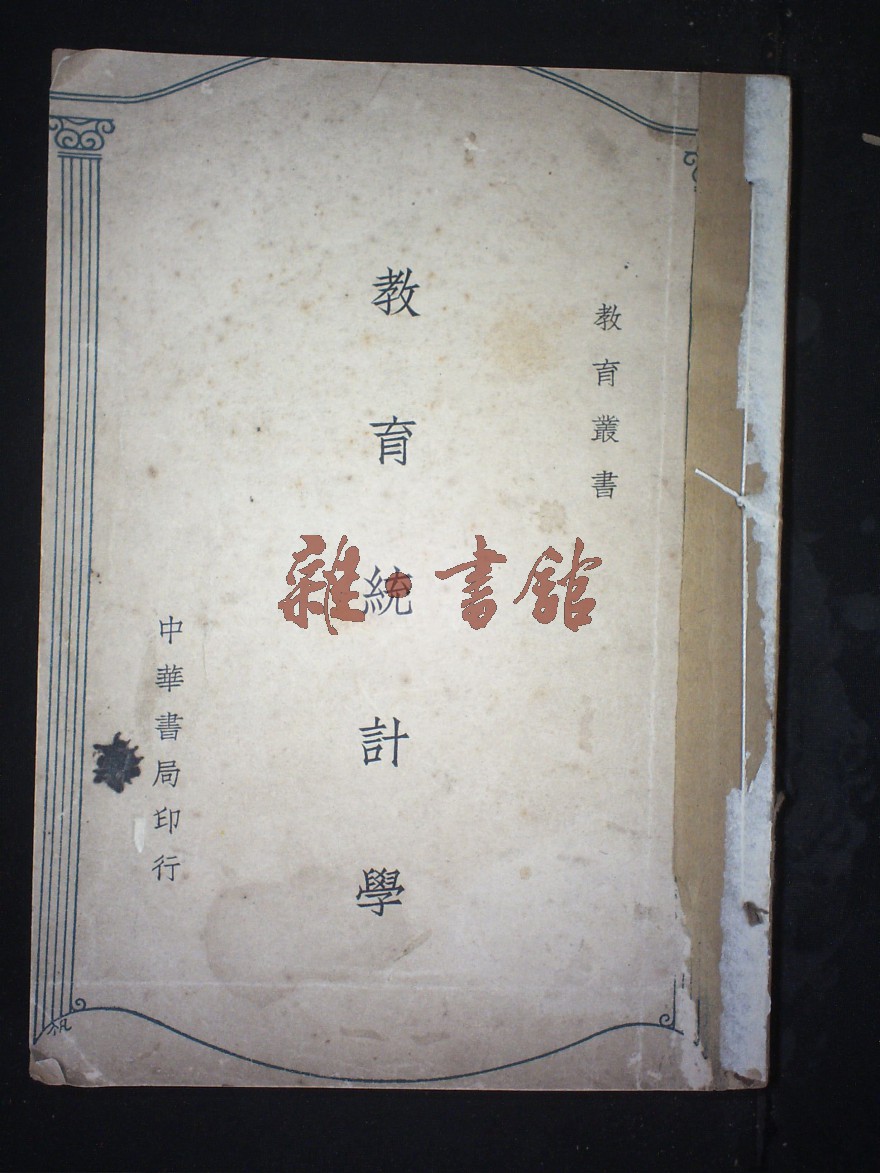 教育叢書
教育統計學
中華書局印行
雜·書館